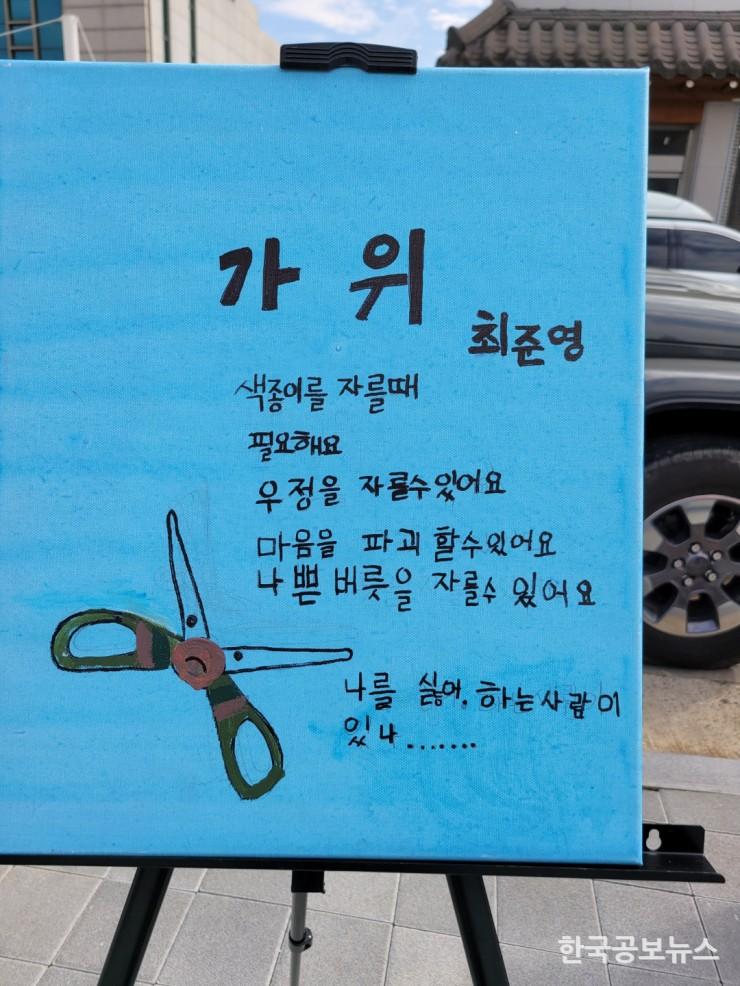 가 위
최준영
색종이를 자를때
필요해요
우정을 자를수있어요
마음을 파괴 할수있어요
나쁜 버릇을 자를수 있어요
나를 싫어. 하는사람이
있나.......
한국공보뉴스